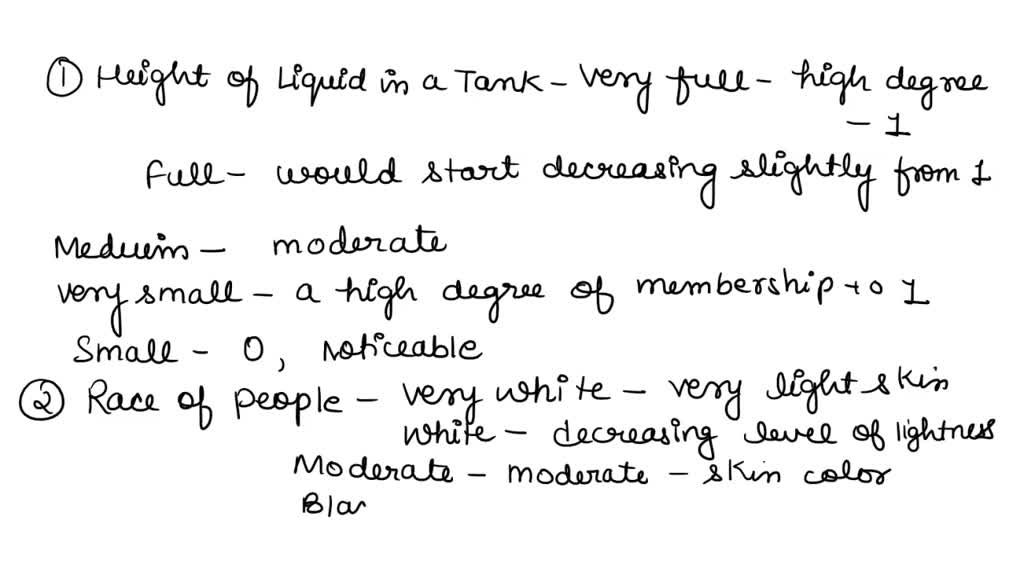 ① Height of Liquid in a Tank - Very full - high degree
- 1
Full - would start decreasing slightly from 1
Meduim - moderate
very small - a high degree of membership to 1
Small - 0, Noticeable
② Race of people - very white - very light skin
white - decreasing level of lightness
Moderate - moderate - skin color
Blac